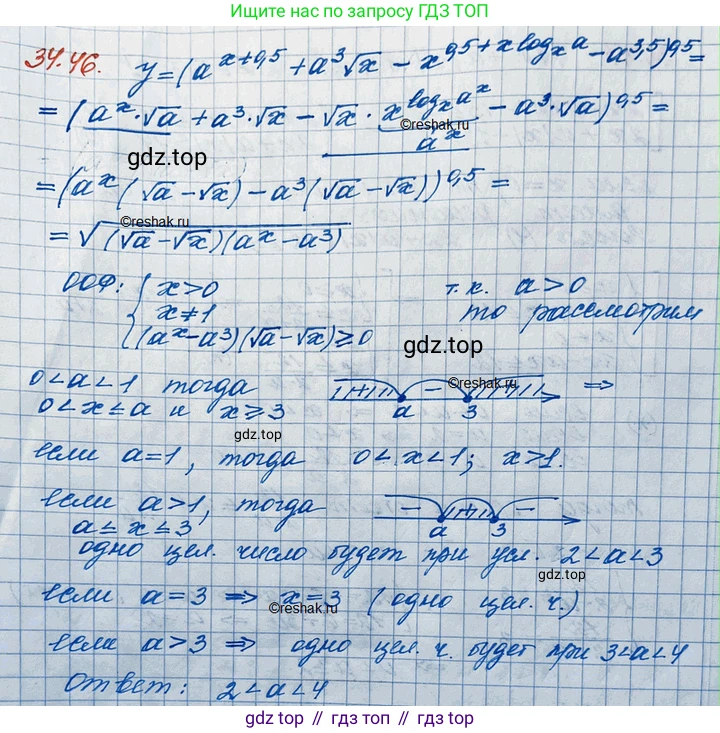 Ищите нас по запросу ГДЗ ТОП
34.46. y=(a^{x+0,5} + a³√x − x^{0,5+xlog_x a} − a^{3,5})^{0,5} =
= (a^x·√a + a³·√x − √x · x^{log_x a^x} − a³·√a)^{0,5} =
©reshak.ru
a^x
gdz.top
= (a^x(√a−√x) − a³(√a−√x))^{0,5} =
©reshak.ru
= √((√a−√x)(a^x−a³))
ООФ: { x>0 т.к. a>0
x≠1 то рассмотрим
(a^x−a³)(√a−√x)≥0
gdz.top
0<a<1 тогда + − + ⇒
©reshak.ru
0<x≤a и x≥3 a 3
gdz.top
если a=1, тогда 0<x<1; x>1.
если a>1, тогда − + −
a≤x≤3 a 3
одно цел. число будет при усл. 2<a<3
gdz.top
если a=3 ⇒ x=3 (одно цел. ч.)
©reshak.ru
если a>3 ⇒ одно цел. ч. будет при 3<a<4
Ответ: 2<a<4
gdz.top // гдз.топ // gdz.top